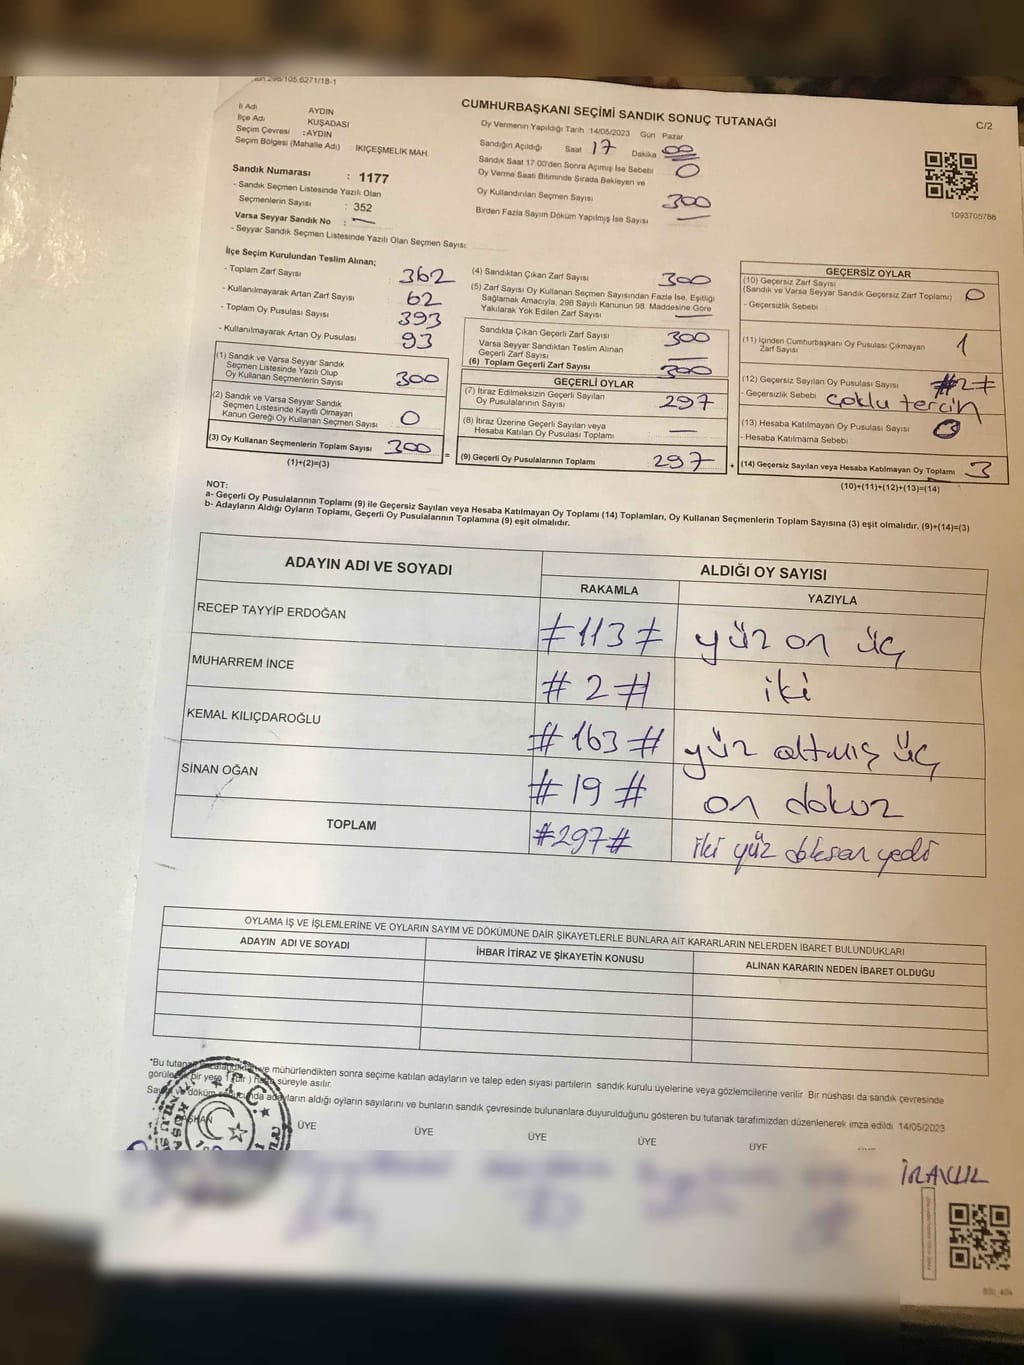 CUMHURBAŞKANI SEÇİMİ SANDIK SONUÇ TUTANAĞI
C/2
İl Adı AYDIN
İlçe Adı : KUŞADASI
Seçim Çevresi : AYDIN
Seçim Bölgesi (Mahalle Adı) : İKİÇEŞMELİK MAH.
Sandık Numarası : 1177
- Sandık Seçmen Listesinde Yazılı Olan
Seçmenlerin Sayısı : 352
Varsa Seyyar Sandık No : —
- Seyyar Sandık Seçmen Listesinde Yazılı Olan Seçmen Sayısı:
Oy Vermenin Yapıldığı Tarih 14/05/2023 Gün Pazar
Sandığın Açıldığı Saat 17 Dakika 00
Sandık Saat 17.00'den Sonra Açımış İse Sebebi
Oy Verme Saati Bitiminde Sırada Bekleyen ve 0
Oy Kullandırılan Seçmen Sayısı 300
Birden Fazla Sayım Döküm Yapılmış İse Sayısı —
1093705786
İlçe Seçim Kurulundan Teslim Alınan;
- Toplam Zarf Sayısı 362
- Kullanılmayarak Artan Zarf Sayısı 62
- Toplam Oy Pusulası Sayısı 393
- Kullanılmayarak Artan Oy Pusulası 93
(1) Sandık ve Varsa Seyyar Sandık
Seçmen Listesinde Yazılı Olup
Oy Kullanan Seçmenlerin Sayısı 300
(2) Sandık ve Varsa Seyyar Sandık
Seçmen Listesinde Kayıtlı Olmayan
Kanun Gereği Oy Kullanan Seçmen Sayısı 0
(3) Oy Kullanan Seçmenlerin Toplam Sayısı 300 =
(1)+(2)=(3)
(4) Sandıktan Çıkan Zarf Sayısı 300
(5) Zarf Sayısı Oy Kullanan Seçmen Sayısından Fazla İse, Eşitliği
Sağlamak Amacıyla, 298 Sayılı Kanunun 98. Maddesine Göre
Yakılarak Yok Edilen Zarf Sayısı —
Sandıkta Çıkan Geçerli Zarf Sayısı 300
Varsa Seyyar Sandıktan Teslim Alınan
Geçerli Zarf Sayısı —
(6) Toplam Geçerli Zarf Sayısı 300
GEÇERLİ OYLAR
(7) İtiraz Edilmeksizin Geçerli Sayılan
Oy Pusulalarının Sayısı 297
(8) İtiraz Üzerine Geçerli Sayılan veya
Hesaba Katılan Oy Pusulası Toplamı —
(9) Geçerli Oy Pusulalarının Toplamı 297 +
GEÇERSİZ OYLAR
(10) Geçersiz Zarf Sayısı
(Sandık ve Varsa Seyyar Sandık Geçersiz Zarf Toplamı) 0
- Geçersizlik Sebebi
(11) İçinden Cumhurbaşkanı Oy Pusulası Çıkmayan
Zarf Sayısı 1
(12) Geçersiz Sayılan Oy Pusulası Sayısı #2#
- Geçersizlik Sebebi çoklu tercih
(13) Hesaba Katılmayan Oy Pusulası Sayısı
- Hesaba Katılmama Sebebi
(14) Geçersiz Sayılan veya Hesaba Katılmayan Oy Toplamı 3
(10)+(11)+(12)+(13)=(14)
NOT:
a- Geçerli Oy Pusulalarının Toplamı (9) ile Geçersiz Sayılan veya Hesaba Katılmayan Oy Toplamı (14) Toplamları, Oy Kullanan Seçmenlerin Toplam Sayısına (3) eşit olmalıdır. (9)+(14)=(3)
b- Adayların Aldığı Oyların Toplamı, Geçerli Oy Pusulalarının Toplamına (9) eşit olmalıdır.
ADAYIN ADI VE SOYADI ALDIĞI OY SAYISI
RAKAMLA YAZIYLA
RECEP TAYYİP ERDOĞAN #113# yüz on üç
MUHARREM İNCE #2# iki
KEMAL KILIÇDAROĞLU #163# yüz altmış üç
SİNAN OĞAN #19# on dokuz
TOPLAM #297# iki yüz doksan yedi
OYLAMA İŞ VE İŞLEMLERİNE VE OYLARIN SAYIM VE DÖKÜMÜNE DAİR ŞİKAYETLERLE BUNLARA AİT KARARLARIN NELERDEN İBARET BULUNDUKLARI
ADAYIN ADI VE SOYADI İHBAR İTİRAZ VE ŞİKAYETİN KONUSU ALINAN KARARIN NEDEN İBARET OLDUĞU
mühürlendikten sonra seçime katılan adayların ve talep eden siyasi partilerin sandık kurulu üyelerine veya gözlemcilerine verilir. Bir nüshası da sandık çevresinde
süreyle asılır.
adayların aldığı oyların sayılarını ve bunların sandık çevresinde bulunanlara duyurulduğunu gösteren bu tutanak tarafımızdan düzenlenerek imza edildi 14/05/2023
ÜYE ÜYE ÜYE ÜYE ÜYE
T.C.